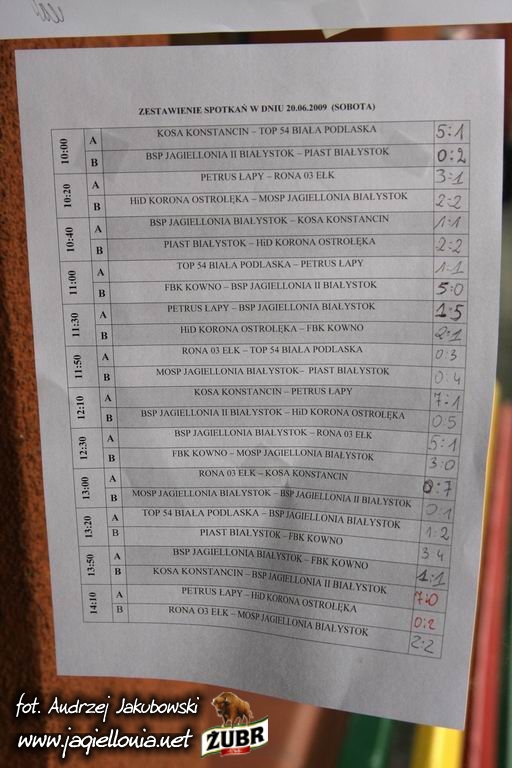 ZESTAWIENIE SPOTKAŃ W DNIU 20.06.2009 (SOBOTA)
10:00 A KOSA KONSTANCIN – TOP 54 BIAŁA PODLASKA 5:1
B BSP JAGIELLONIA II BIAŁYSTOK – PIAST BIAŁYSTOK 0:2
10:20 A PETRUS ŁAPY – RONA 03 EŁK 3:1
B HiD KORONA OSTROŁĘKA – MOSP JAGIELLONIA BIAŁYSTOK 2:2
10:40 A BSP JAGIELLONIA BIAŁYSTOK – KOSA KONSTANCIN 1:1
B PIAST BIAŁYSTOK – HiD KORONA OSTROŁĘKA 2:2
11:00 A TOP 54 BIAŁA PODLASKA – PETRUS ŁAPY 1:1
B FBK KOWNO – BSP JAGIELLONIA II BIAŁYSTOK 5:0
11:30 A PETRUS ŁAPY – BSP JAGIELLONIA BIAŁYSTOK 1:5
B HiD KORONA OSTROŁĘKA – FBK KOWNO 2:1
11:50 A RONA 03 EŁK – TOP 54 BIAŁA PODLASKA 0:3
B MOSP JAGIELLONIA BIAŁYSTOK– PIAST BIAŁYSTOK 0:4
12:10 A KOSA KONSTANCIN – PETRUS ŁAPY 7:1
B BSP JAGIELLONIA II BIAŁYSTOK – HiD KORONA OSTROŁĘKA 0:5
12:30 A BSP JAGIELLONIA BIAŁYSTOK – RONA 03 EŁK 5:1
B FBK KOWNO – MOSP JAGIELLONIA BIAŁYSTOK 3:0
13:00 A RONA 03 EŁK – KOSA KONSTANCIN 0:7
B MOSP JAGIELLONIA BIAŁYSTOK – BSP JAGIELLONIA II BIAŁYSTOK 0:1
13:20 A TOP 54 BIAŁA PODLASKA – BSP JAGIELLONIA BIAŁYSTOK 1:2
B PIAST BIAŁYSTOK – FBK KOWNO 3:4
13:50 A BSP JAGIELLONIA BIAŁYSTOK – FBK KOWNO 1:1
B KOSA KONSTANCIN – BSP JAGIELLONIA II BIAŁYSTOK 7:0
14:10 A PETRUS ŁAPY – HiD KORONA OSTROŁĘKA 0:2
B RONA O3 EŁK – MOSP JAGIELLONIA BIAŁYSTOK 2:2
fot. Andrzej Jakubowski
www.jagiellonia.net
ŻUBR